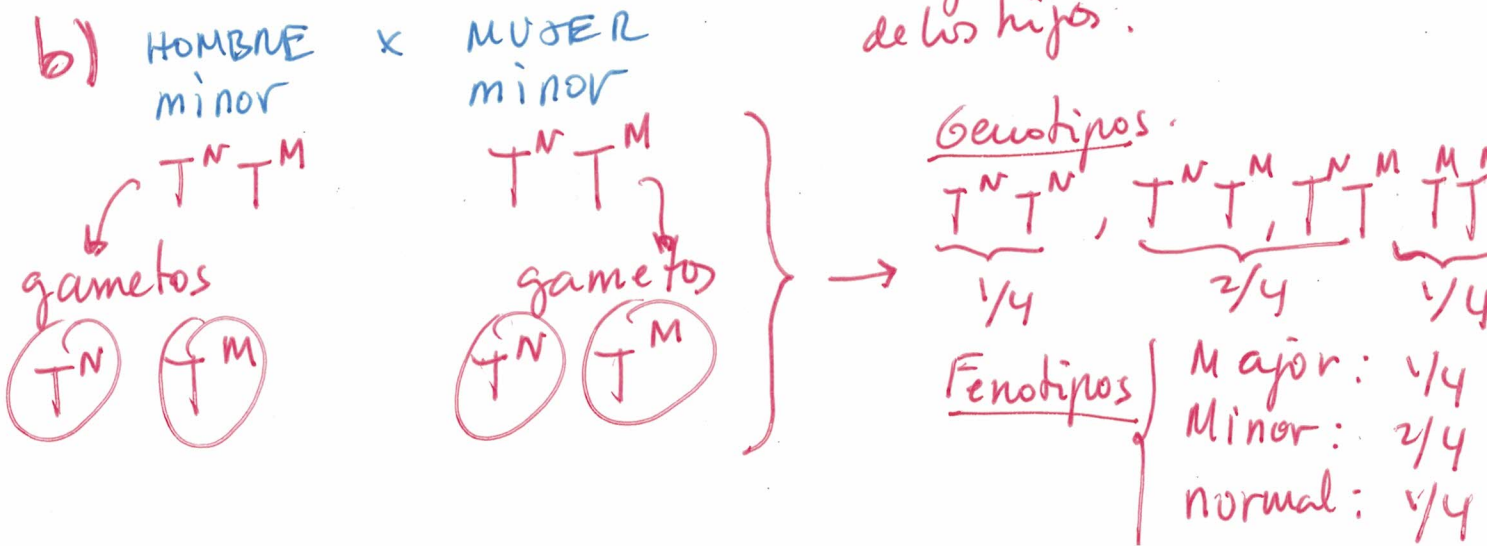 b) HOMBRE x MUJER
minor minor
T^N T^M T^N T^M
gametos gametos
T^N T^M T^N T^M
de los hijos.
Genotipos.
T^N T^N, T^N T^M, T^N T^M T^M T
1/4 2/4 1/4
Fenotipos Major: 1/4
Minor: 2/4
normal: 1/4